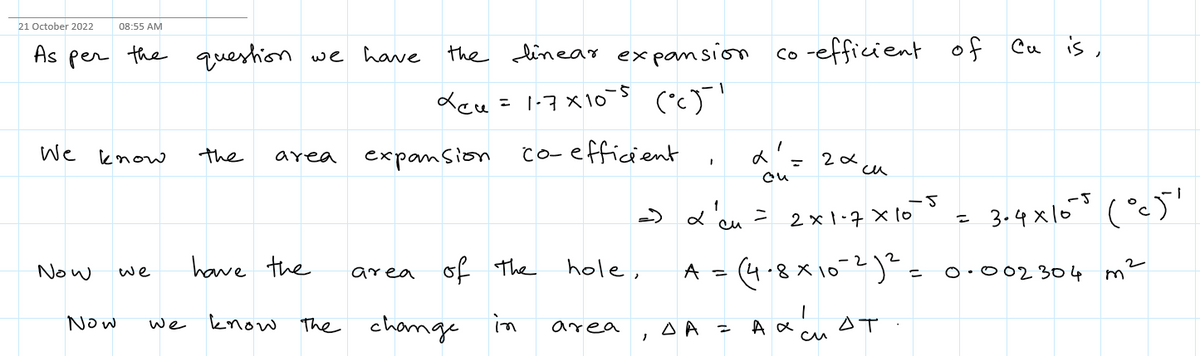 21 October 2022 08:55 AM
As per the question we have the linear expansion co-efficient of Cu is,
αcu = 1.7 × 10⁻⁵ (°C)⁻¹
We know the area expansion co-efficient, α'cu = 2αcu
⇒ α'cu = 2 × 1.7 × 10⁻⁵ = 3.4 × 10⁻⁵ (°C)⁻¹
Now we have the area of the hole, A = (4.8 × 10⁻²)² = 0.002304 m²
Now we know the change in area, ΔA = A α'cu ΔT.